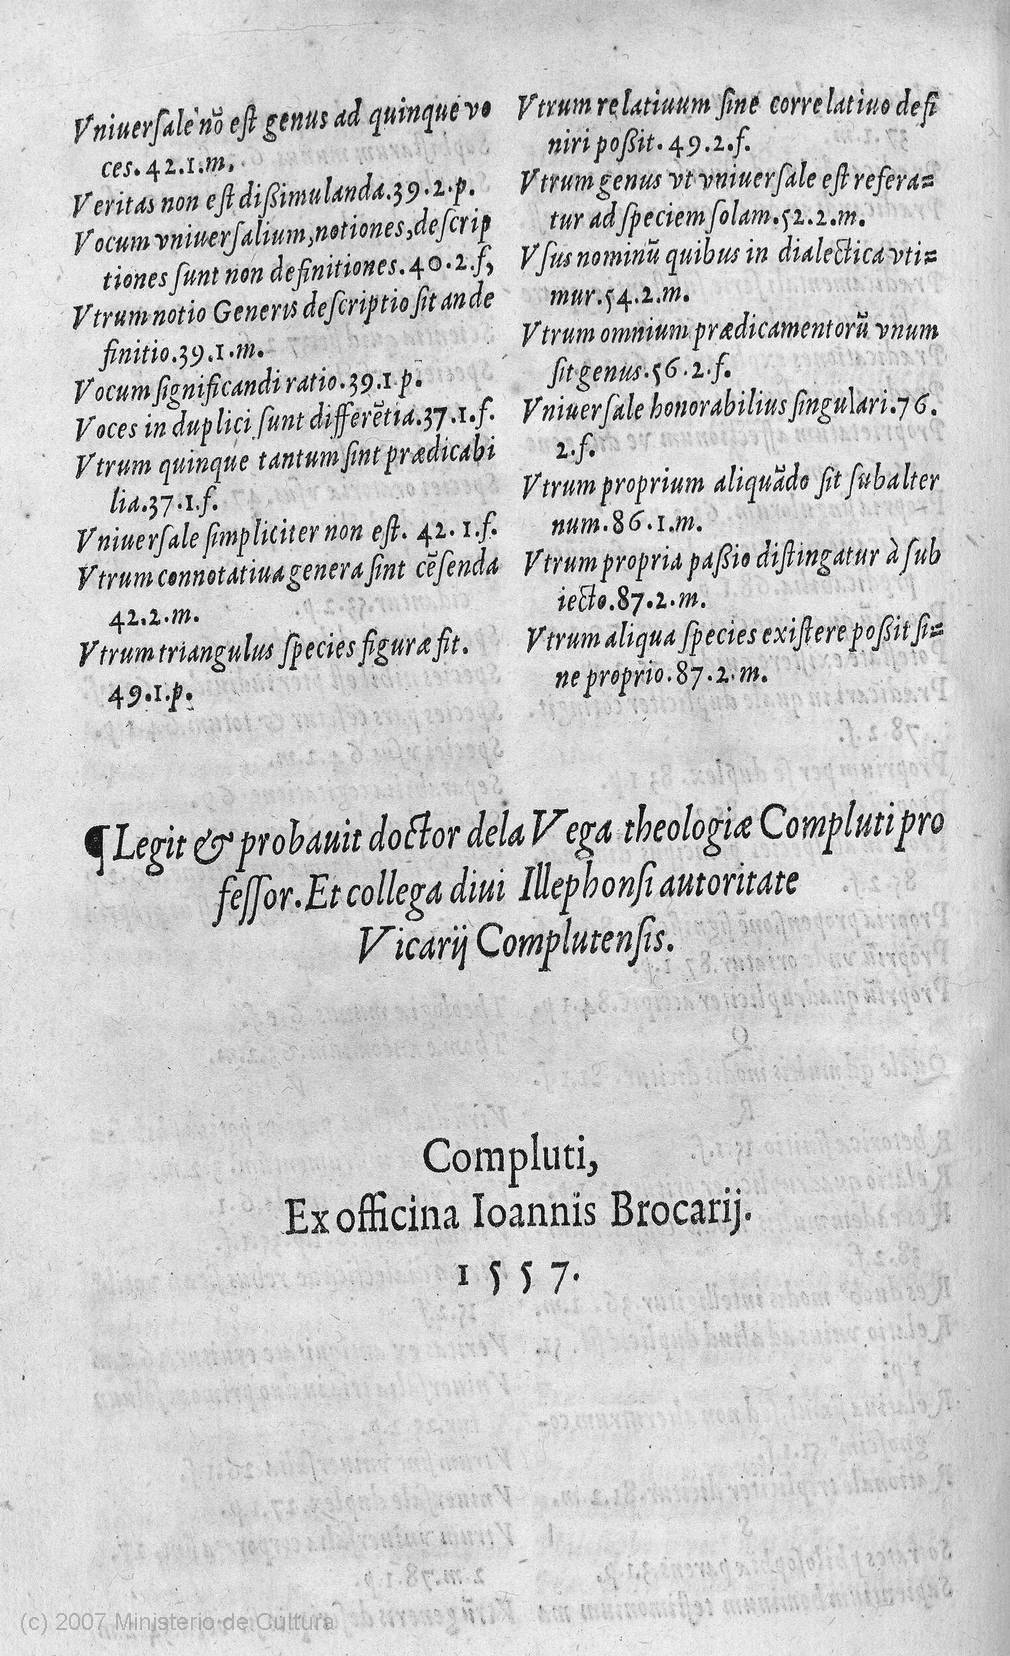 Vniuerſale nõ eſt genus ad quinque vo
ces.42.1.m.
Veritas non eſt dißimulanda.39.2.p.
Vocum vniuerſalium,notiones,deſcrip
tiones ſunt non definitiones.40.2.f,
Vtrum notio Generis deſcriptio ſit an de
finitio.39.1.m.
Vocum ſignificandi ratio.39.1.p.
Voces in duplici ſunt differẽtia.37.1.f.
Vtrum quinque tantum ſint prædicabi
lia.37.1.f.
Vniuerſale ſimpliciter non eſt. 42.1.f.
Vtrum connotatiua genera ſint cẽſenda
42.2.m.
Vtrum triangulus ſpecies figuræ ſit.
49.1.p.
Vtrum relatiuum ſine correlatiuo defi
niri poßit.49.2.f.
Vtrum genus vt vniuerſale eſt refera=
tur ad ſpeciem ſolam.52.2.m.
Vſus nominũ quibus in dialectica vti=
mur.54.2.m.
Vtrum omnium prædicamentorũ vnum
ſit genus.56.2.f.
Vniuerſale honorabilius ſingulari.76.
2.f.
Vtrum proprium aliquãdo ſit ſubalter
num.86.1.m.
Vtrum propria paßio diſtingatur à ſub
iecto.87.2.m.
Vtrum aliqua ſpecies exiſtere poßit ſi=
ne proprio.87.2.m.
¶Legit & probauit doctor dela Vega theologiæ Compluti pro
feſſor.Et collega diui Illephonſi autoritate
Vicarij Complutenſis.
Compluti,
Ex officina Ioannis Brocarij.
1557.
(c) 2007 Ministerio de Cultura